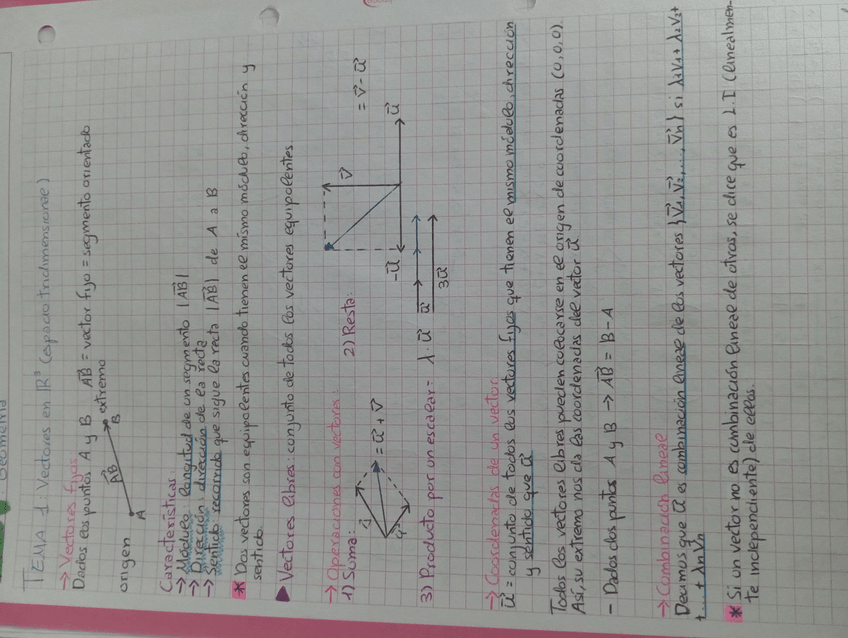 Geometría
TEMA 1. Vectores en ℝ³ (espacio tridimensional)
→ Vectores fijos:
Dados los puntos A y B  AB = vector fijo = segmento orientado
AB
extremo
B
A
origen
Características:
→ Módulo: longitud de un segmento |AB|
→ Dirección: dirección de la recta
→ Sentido: recorrido que sigue la recta |AB| de A a B
* Dos vectores son equipolentes cuando tienen el mismo módulo, dirección y
sentido.
▶ Vectores libres: conjunto de todos los vectores equipolentes.
→ Operaciones con vectores:
1) Suma:
= u + v
2) Resta:
v
-u
u
= v - u
3) Producto por un escalar = λ · u
u
3u
→ Coordenadas de un vector:
u = conjunto de todos los vectores fijos que tienen el mismo módulo, dirección
y sentido que u
Todos los vectores libres pueden colocarse en el origen de coordenadas (0,0,0).
Así, su extremo nos da las coordenadas del vector u
- Dados dos puntos A y B → AB = B - A
→ Combinación lineal
Decimos que u es combinación lineal de los vectores {v1, v2, ..., vn} si λ1v1 + λ2v2 +
+ ... + λnvn
* Si un vector no es combinación lineal de otros, se dice que es L.I (linealmen-
te independiente) de ellos.